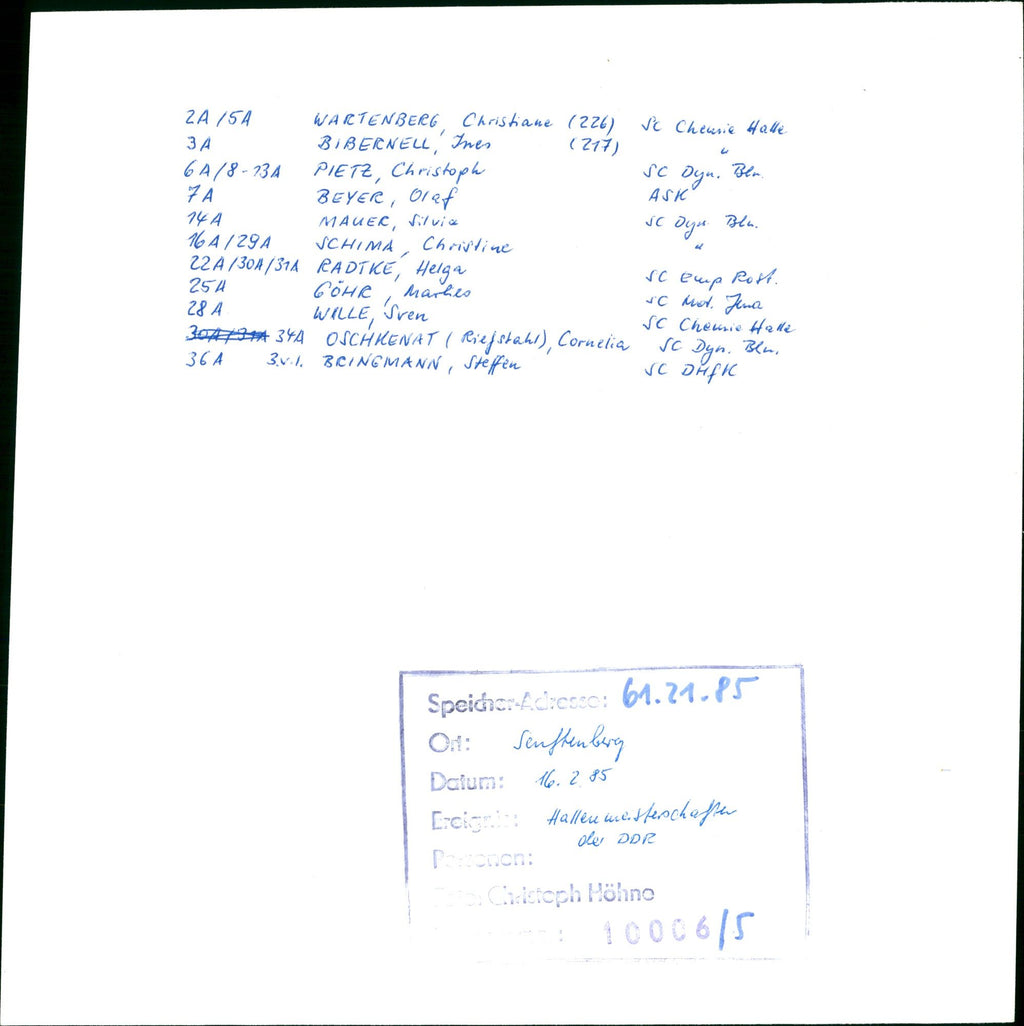 2A/5A WARTENBERG, Christiane (226) SC Chemie Halle
3A BIBERNELL, Ines (217) "
6A/8-13A PIETZ, Christoph SC Dyn. Bln.
7A BEYER, Olaf ASK
14A MAUER, Silvia SC Dyn. Bln.
16A/29A SCHIMA, Christine "
22A/30A/31A RADTKE, Helga SC Emp Rost.
25A GÖHR, Marlies SC Mot. Jena
28A WILLE, Sven SC Chemie Halle
30A/31A 34A OSCHKENAT (Riefstahl), Cornelia SC Dyn. Bln.
36A 3.v.l. BRINGMANN, Steffen SC DHfK
Speicher-Adresse: 61.21.85
Ort: Senftenberg
Datum: 16.2.85
Ereignis: Hallenmeisterschaften
der DDR
Personen:
Foto: Christoph Höhne
: 10006/5